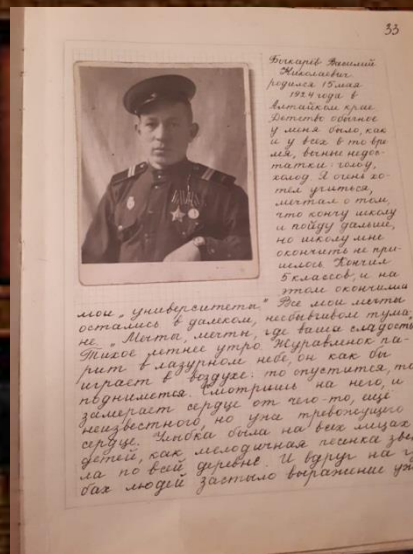 33
Бочкарев Василий
Николаевич
родился 15 мая
1924 года в
Алтайком крае
Детство обычное
у меня было, как
и у всех в то вре
мя, вечные недос-
татки: голод,
холод. Я очень хо-
тел учиться,
мечтал о том,
что кончу школу
и пойду дальше,
но школу мне
окончить не при-
шлось. Кончил
5 классов, и на
этом окончились
мои „университеты" Все мои мечты
остались в далеком, несбывшом тума
не. „Мечты, мечты, где ваша сладость
Тихое летнее утро. Журавленок па-
рит в лазурном небе, он как бы
играет в воздухе: то опустится, то
поднимется. Смотришь на него, и
замерает сердце от чего-то, еще
неизвестного, но уже тревожущего
сердце. Улыбка была на всех лицах
детей, как мелодичная песенка зве
ла по всей деревне. И вдруг на г
бах людей застыло выражение уж